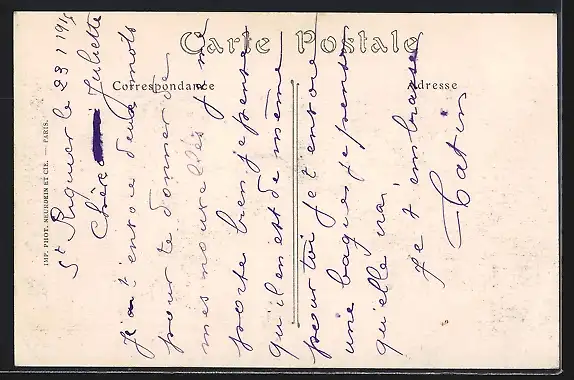 Carte Postale
Correspondance
Adresse
IMP. PHOT. NEURDEIN ET CIE. — PARIS.
St Riquier le 23 1 191
Chère Juliette
Je t'envoie deux mots
pour te donner de
mes nouvelles je me
porte bien je pense
qu'il en est de même
pour toi je t'envoie
une bague je pense
qu'elle irai
Je t'embrasse